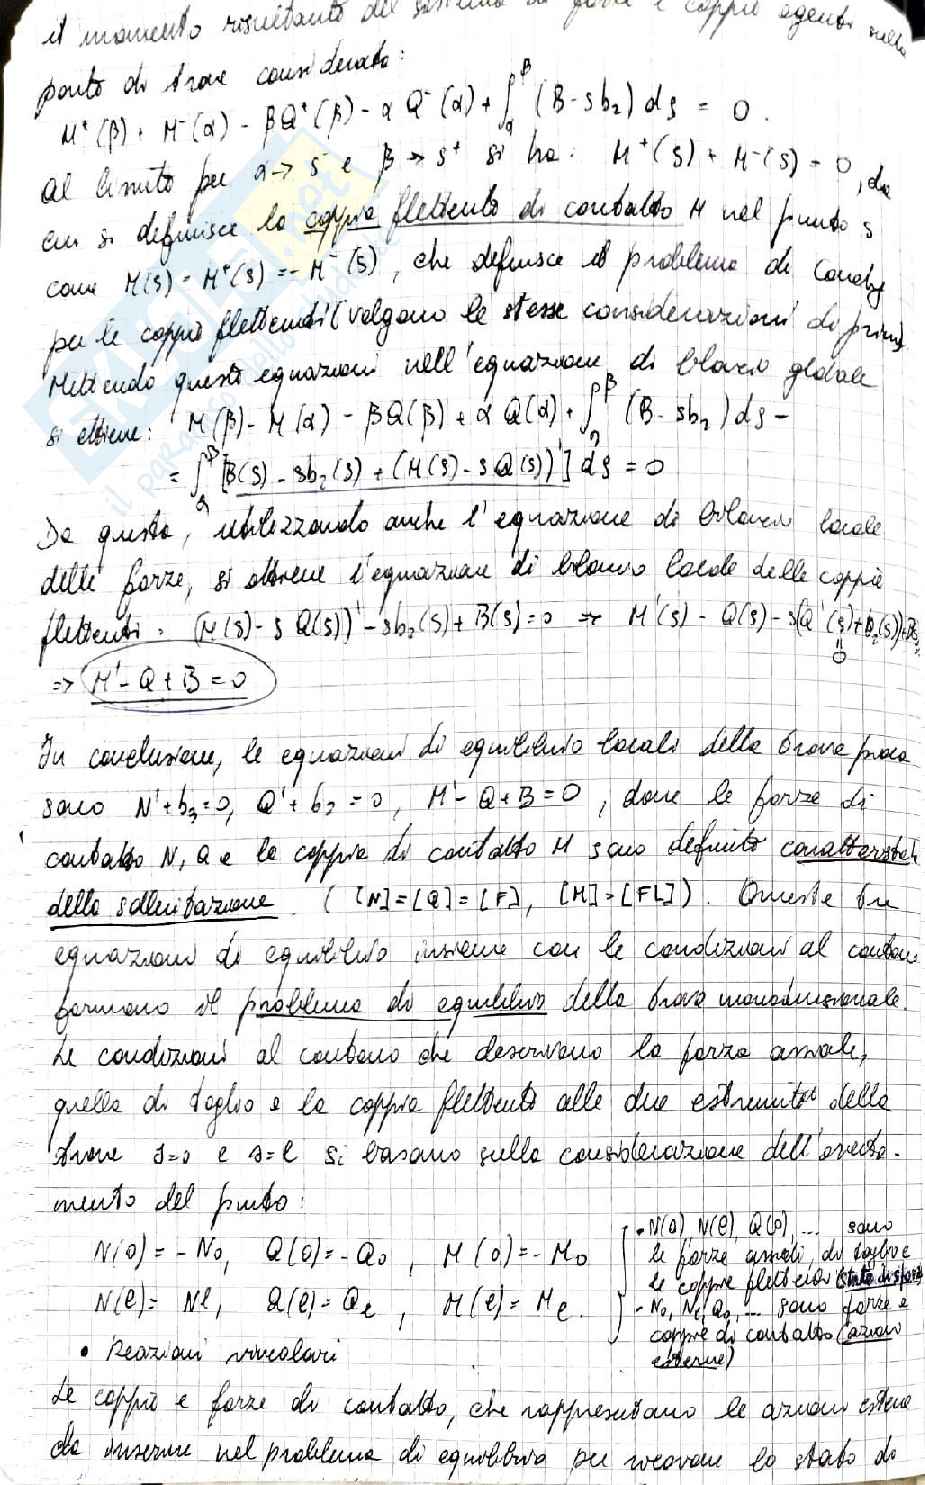 il momento risultante del sistema di forze e coppie agenti sulla
parte di trave considerata:
M⁺(β) + M⁻(α) - βQ⁺(β) - αQ⁻(α) + ∫_α^β (B - sb₂) ds = 0.
al limite per α → s⁻ e β → s⁺ si ha: M⁺(s) + M⁻(s) = 0, da
cui si definisce la coppia flettente di contatto M nel punto s
come M(s) = M⁺(s) = - M⁻(s), che definisce il problema di Cauchy
per le coppie flettenti (valgono le stesse considerazioni di prima)
Mettendo queste equazioni nell'equazione di bilancio globale
si ottiene: M(β) - M(α) - βQ(β) + αQ(α) + ∫_α^β (B - sb₂) ds =
= ∫_α^β [B(s) - sb₂(s) + (M(s) - sQ(s))'] ds = 0
Da questa, utilizzando anche l'equazione di bilancio locale
delle forze, si ottiene l'equazione di bilancio locale delle coppie
flettenti: (M(s) - sQ(s))' - sb₂(s) + B(s) = 0 ⇒ M'(s) - Q(s) - s(Q'(s) + b₂(s)) + B
= 0
⇒ M' - Q + B = 0
In conclusione, le equazioni di equilibrio locali della trave piana
sono N' + b₃ = 0, Q' + b₂ = 0, M' - Q + B = 0, dove le forze di
contatto N, Q e la coppia di contatto M sono definite caratteristiche
della sollecitazione. ([N] = [Q] = [F], [M] = [FL]). Queste tre
equazioni di equilibrio insieme con le condizioni al contorno
formano il problema di equilibrio della trave monodimensionale.
Le condizioni al contorno che descrivono la forza assiale,
quella di taglio e la coppia flettente alle due estremità della
trave s=0 e s=l si basano sulla considerazione dell'
mento del punto:
N(0) = - N₀, Q(0) = - Q₀, M(0) = - M₀
N(l) = Nl, Q(l) = Ql, M(l) = Ml.
• N(0), N(l), Q(0), ... sono
le forze assiali, di taglio e
le coppie flettenti (stato di sforzo)
- N₀, Nl, Q₀, ... sono forze e
coppie di contatto (azioni
esterne)
• Reazioni vincolari
Le coppie e forze di contatto, che rappresentano le azioni esterne
da inserire nel problema di equilibrio per ricavare lo stato di